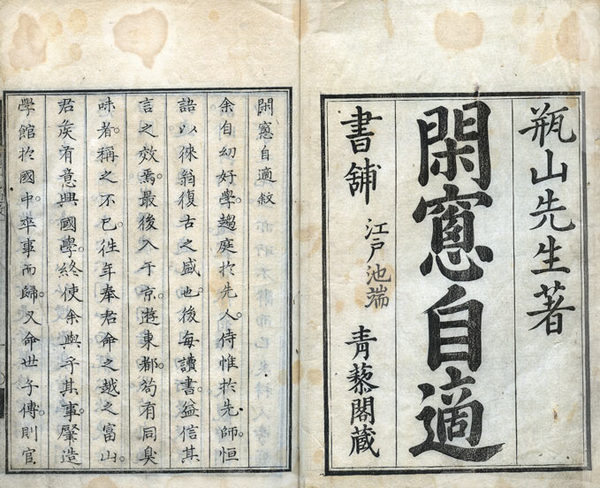 瓶山先生著
閑窻自適
書舗 江戸池端 青藜閣蔵
閑窻自適敘
余自幼好學。趨庭於先人。侍惟於先師。恒
語以徠翁復古之盛也。後每讀書益信其
言之效焉。最後入于京。遊東都。苟有同臭
味者。稱之不已。往年奉君命之越之富山。
君矦有意興國學。終使余與乎其事。肈造
學館於國中。卒事而歸。又命世子傳。則官